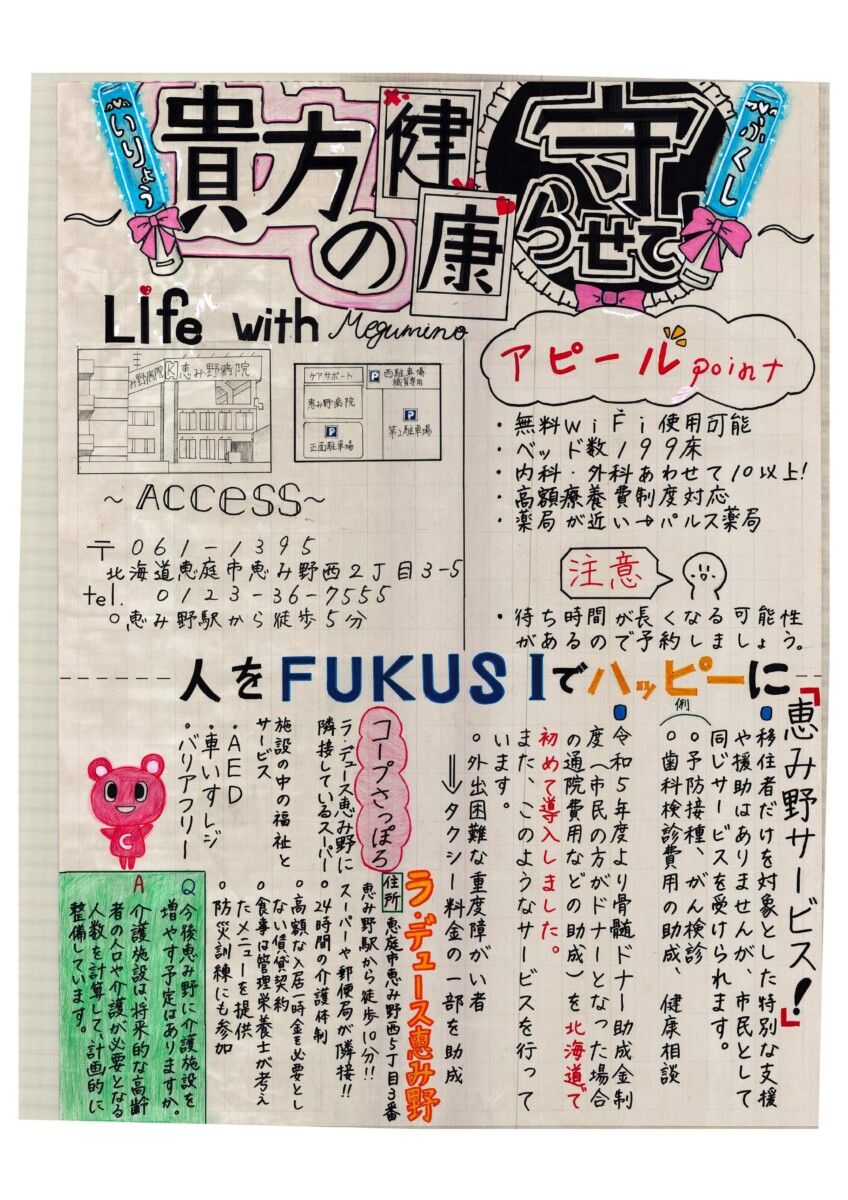 いりょう
貴方の健康
守らせて!
ふくし
Life with Megumino
み野病院 恵み野病院
ケアサポート
P 西駐車場
職員専用
恵み野病院
P
正面駐車場
P
第2駐車場
~ACCESS~
〒061-1395
北海道恵庭市恵み野西2丁目3-5
tel. 0123-36-7555
○恵み野駅から徒歩5分
アピールpoint
・無料WiFi使用可能
・ベッド数199床
・内科・外科あわせて10以上!
・高額療養費制度対応
・薬局が近い→パルス薬局
注意
・待ち時間が長くなる可能性
があるので予約しましょう。
人をFUKUSIでハッピーに
「恵み野サービス!」
移住者だけを対象とした特別な支援
や援助はありませんが、市民として
同じサービスを受けられます。
例
○予防接種、がん検診
○歯科検診費用の助成、健康相談
令和5年度より骨髄ドナー助成金制
度(市民の方がドナーとなった場合
の通院費用などの助成)を北海道で
初めて導入しました。
また、このようなサービスを行って
います。
○外出困難な重度障がい者
⇒タクシー料金の一部を助成
コープさっぽろ
ラ・デュース恵み野に
隣接しているスーパー
施設の中の福祉と
サービス
・AED
・車いすレジ
・バリアフリー
ラ・デュース恵み野
住所 恵庭市恵み野西5丁目3番
恵み野駅から徒歩10分!!
スーパーや郵便局が隣接!!
○24時間の介護体制
○高額な入居一時金を必要とし
ない賃貸契約
○食事は管理栄養士が考え
たメニューを提供
○防災訓練にも参加
C
Q 今後恵み野に介護施設を
増やす予定はありますか。
A 介護施設は将来的な高齢
者の人口や介護が必要となる
人数を計算して、計画的に
整備しています。